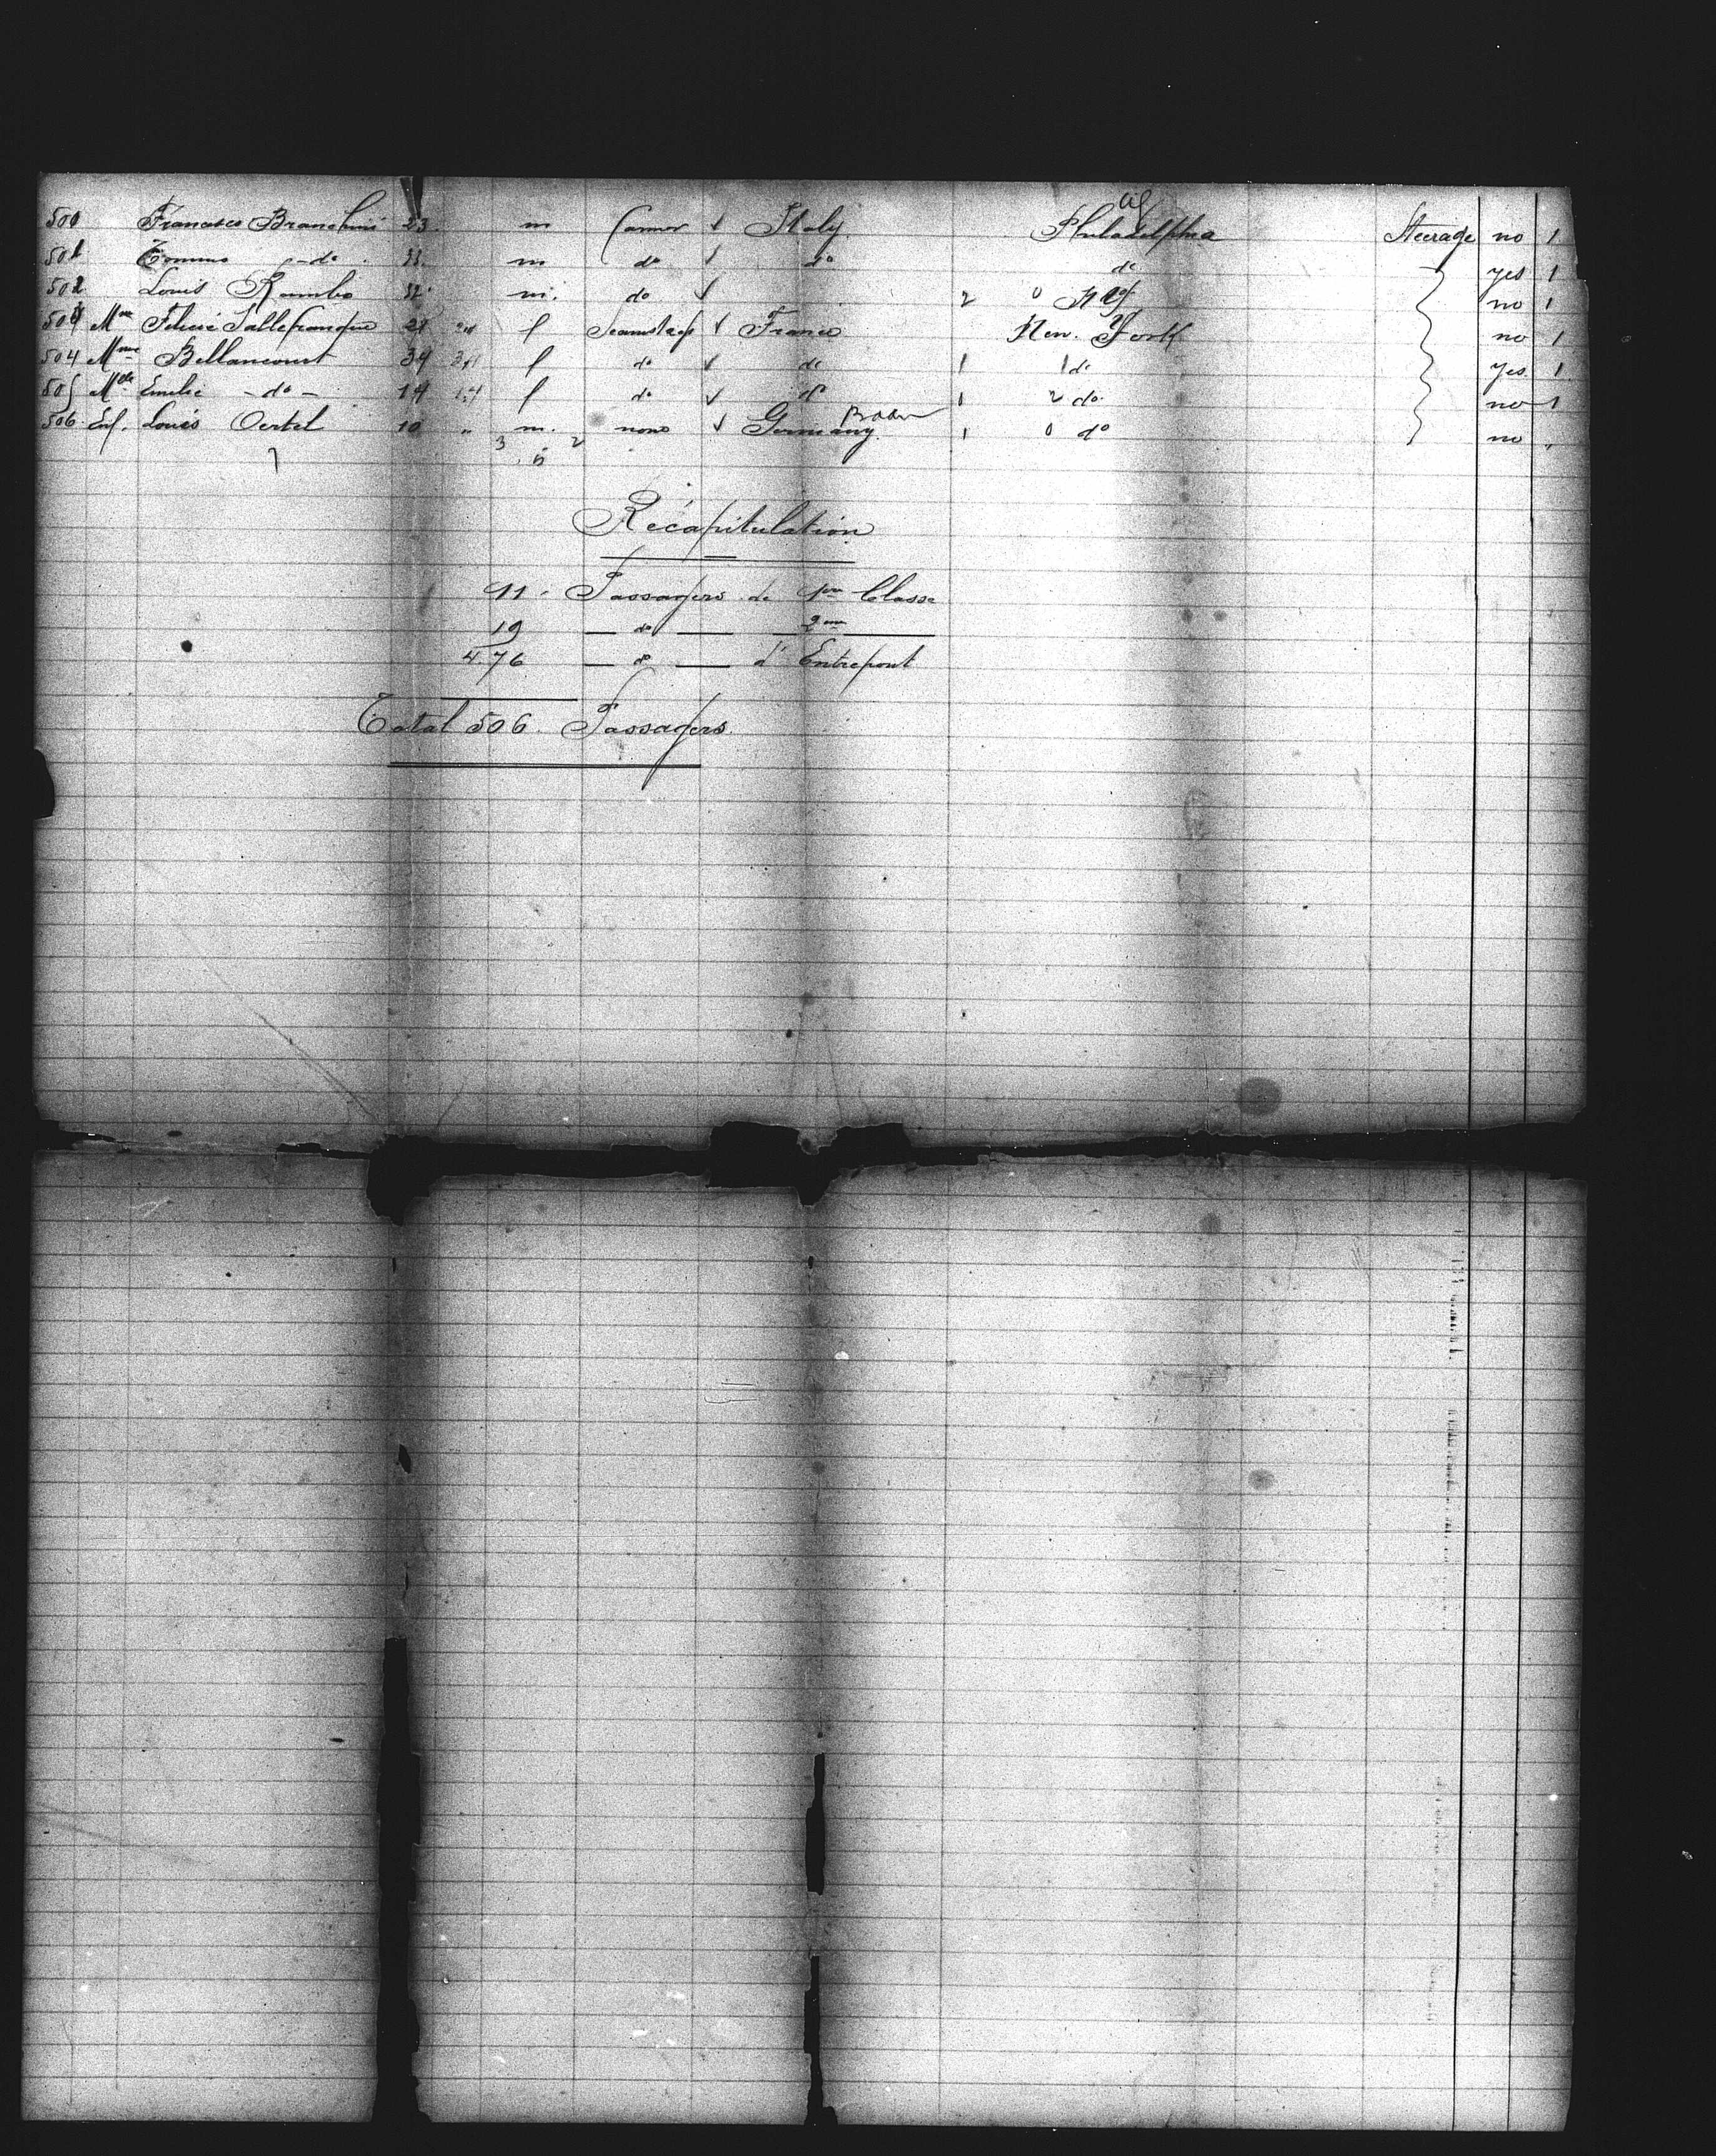 500 Francesco Branchini 23 m Farmer ✓ Italy Philadelphia Steerage no 1
501 Tommo - do - 33 m do ✓ do do yes 1
502 Louis Rambo 32 m. do ✓ 2 0 no 1
503 Mme Felicie Sallefranque 28 f Seamstress ✓ France New. York no 1
504 Mme Bellancourt 34 34 f do ✓ do 1 1 do yes 1
505 Mlle Emilie - do - 14 14 f do ✓ do 1 2 do no 1
506 Enf. Louis Oertel 10 " m. none ✓ Germany Baden 1 0 do no "
7 3 2
Récapitulation
11 - Passagers de 1re Classe
19 — do — 2me —
476 — do — d'Entrepont
Total 506. Passagers.